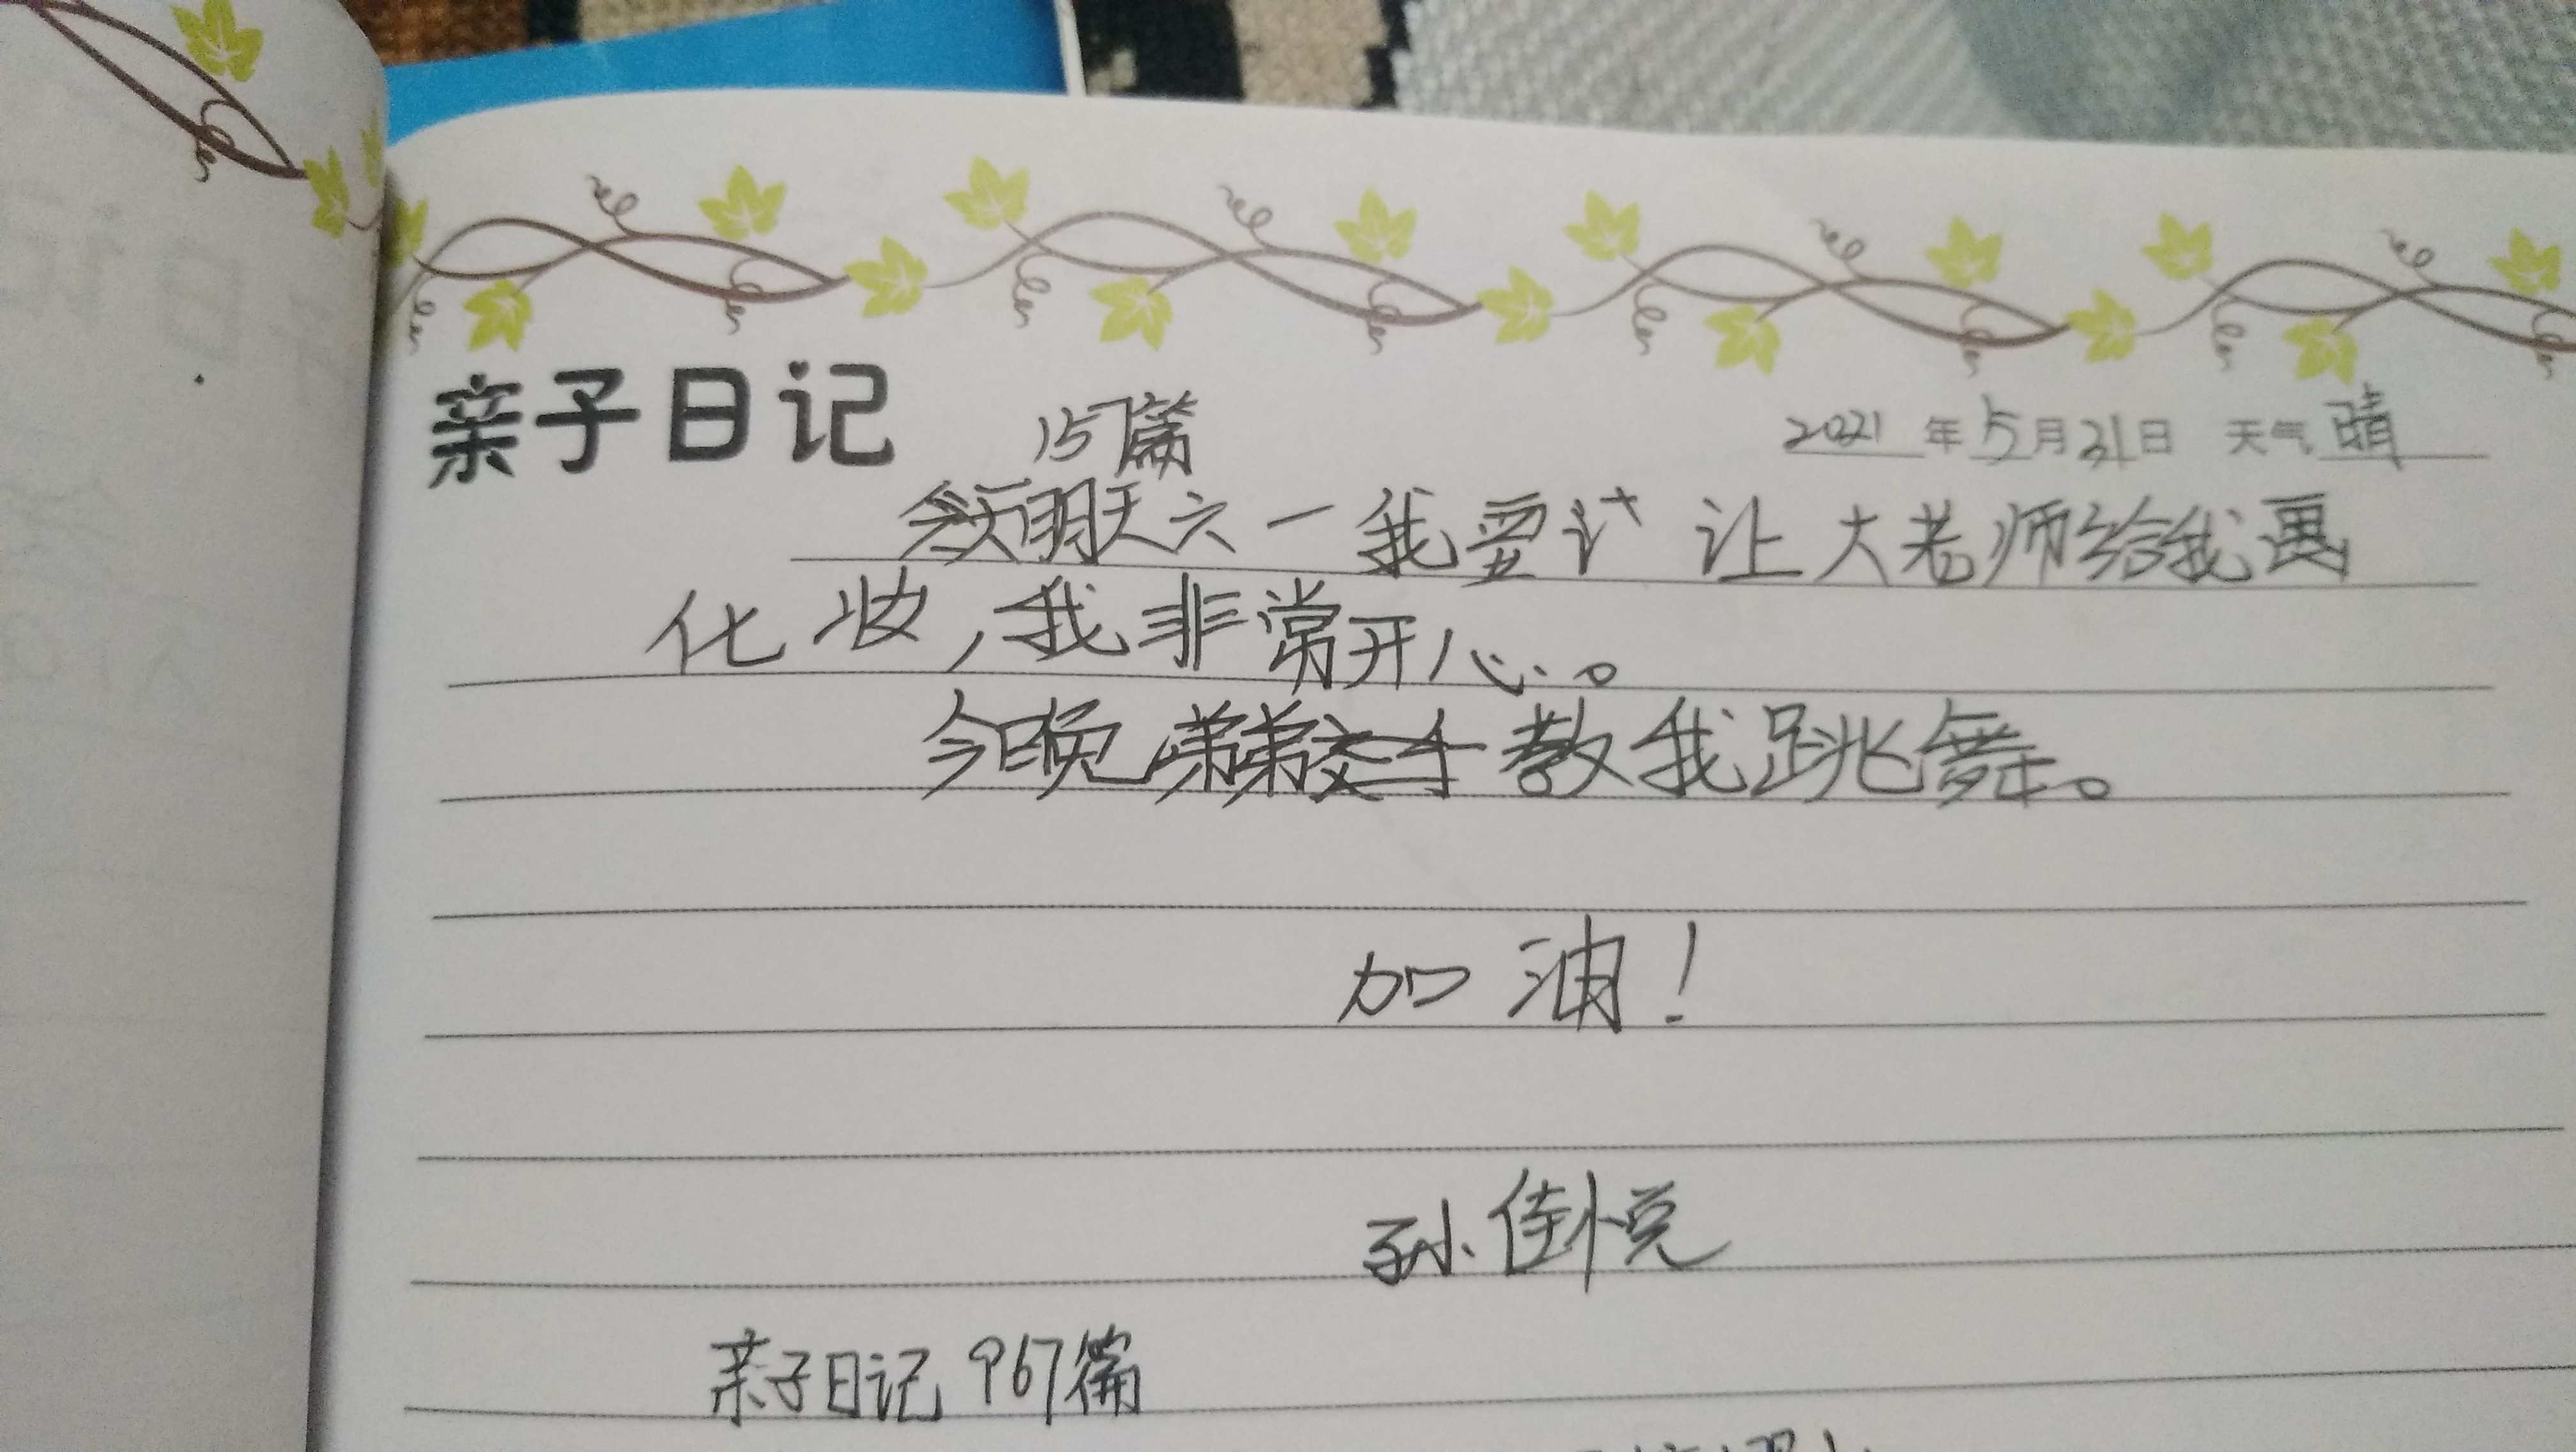 亲子日记 157篇 2021年5月31日 天气晴
明天六一我要让大老师给我画
化妆,我非常开心。
今晚弟弟教我跳舞。
加油!
孙佳悦
亲子日记 967篇